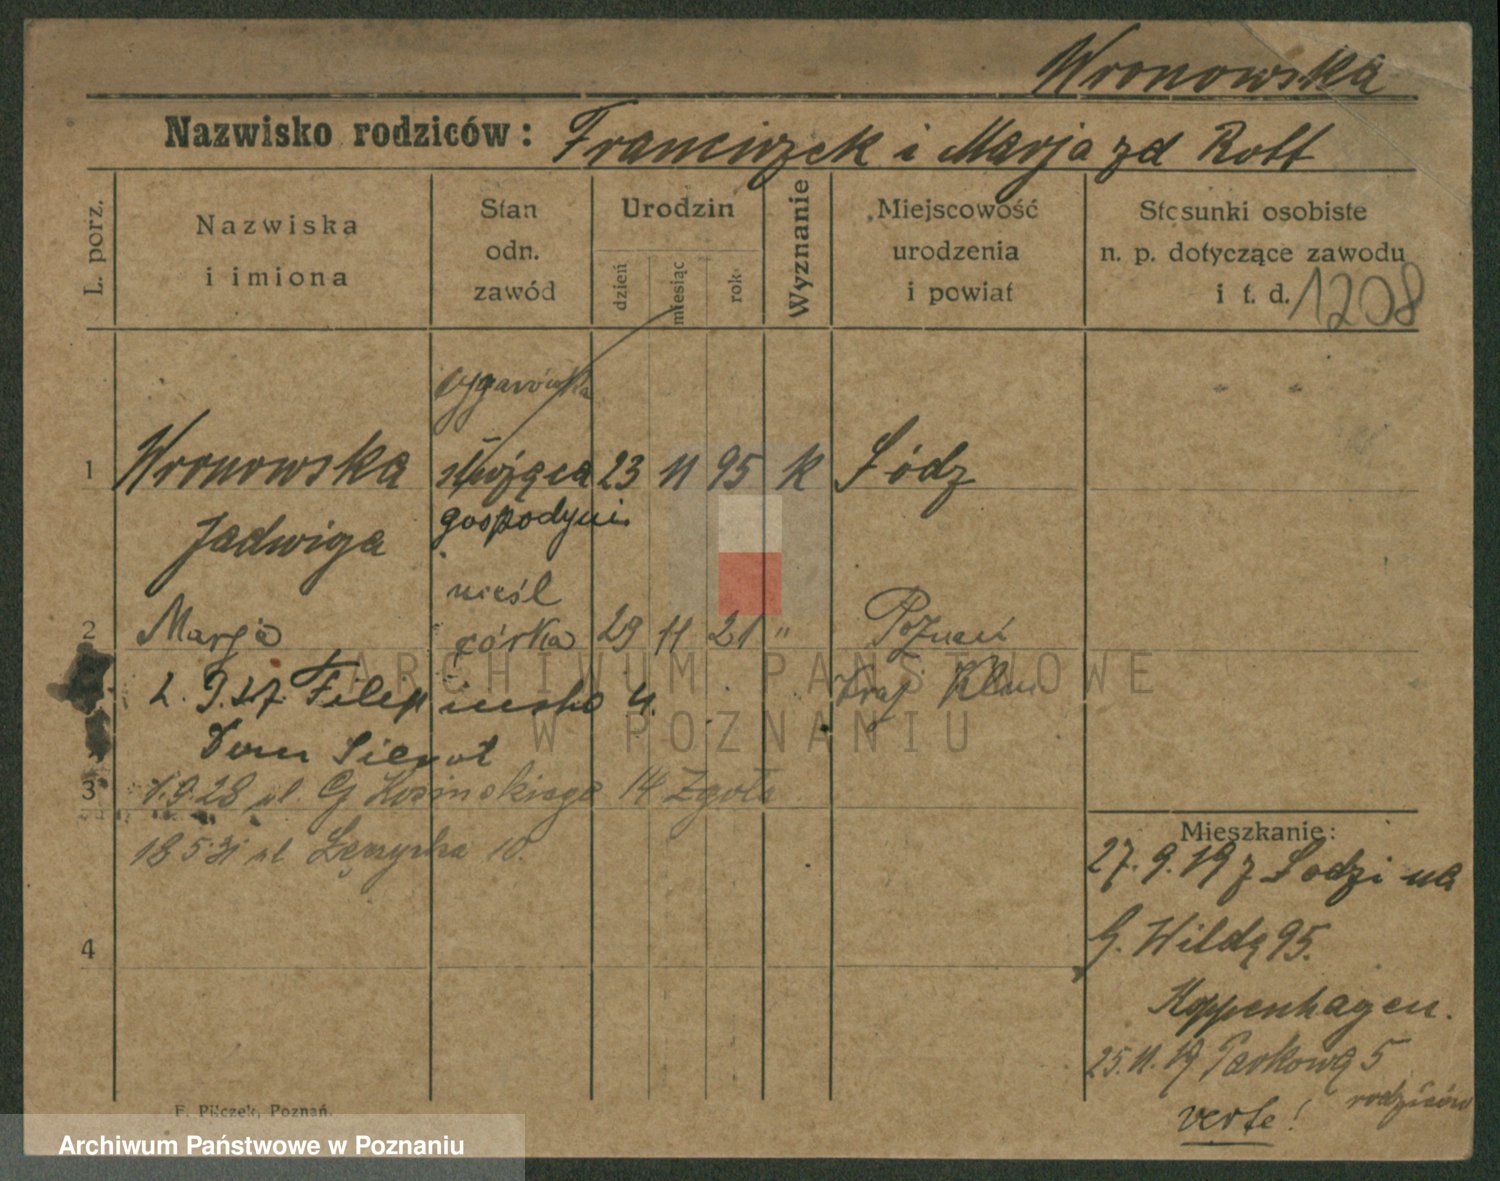 Wronowska
Nazwisko rodziców: Franciszek i Marja zd Rott
L. porz.
Nazwiska i imiona
Stan odn. zawód
Urodzin
dzień
miesiąc
rok
Wyznanie
Miejscowość urodzenia i powiat
Stosunki osobiste n. p. dotyczące zawodu i t. d. 1208
cygarówka
1 Wronowska służąca 23 11 95 k Łódz
Jadwiga gospodyni
nieśl
2 Marja córka 29 11 21 " Poznań
2. 9. 27
Dom Sierot
3 1.9.28 pl. G 14 Zgoła
18 5 31 10.
4
Mieszkanie:
27. 9. 19 z Łodzi na
G. Wildę 95.
Koppenhagen.
25. 11. 19 Parkową 5
rodziców
verte!
F. Pilczek, Poznań.
ARCHIWUM PAŃSTWOWE
W POZNANIU
Archiwum Państwowe w Poznaniu